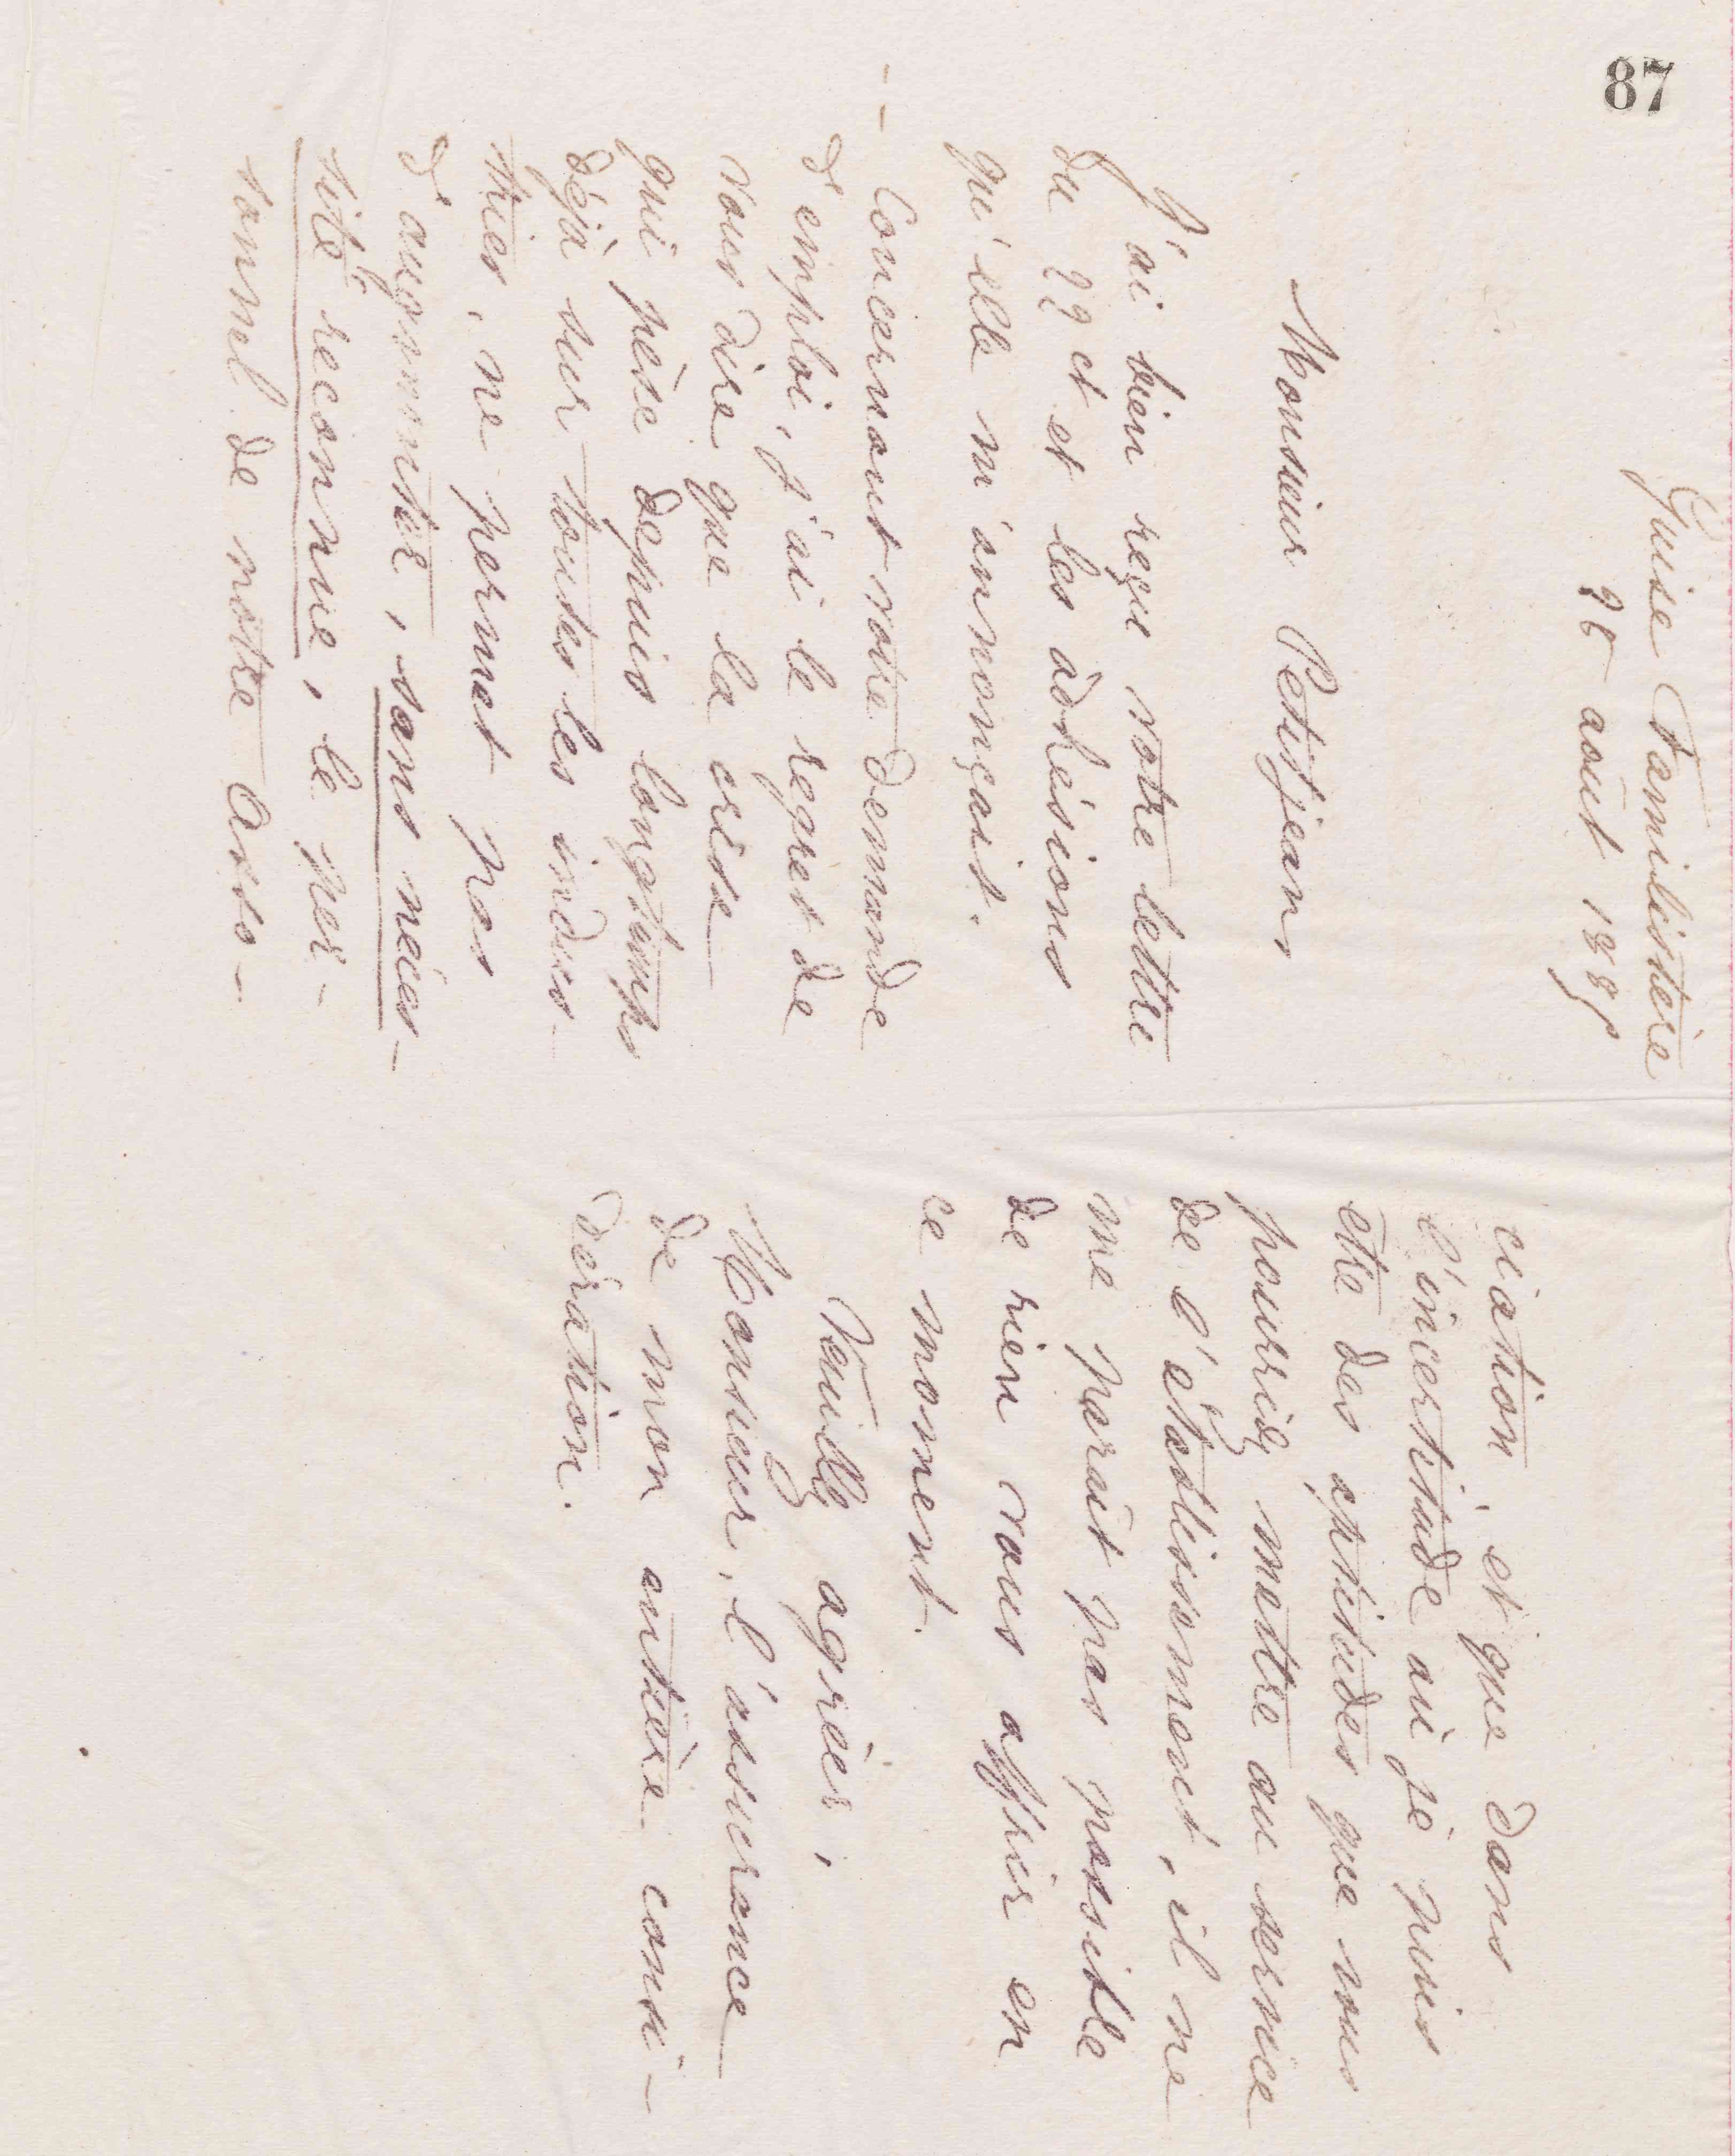 87
Guise Familistère
26 août 1885
Monsieur Petitjean
J'ai bien reçu votre lettre
du 22 ct et les adhésions
qu'elle m'annonçait.
Concernant votre demande
d'emploi, j'ai le regret de
vous dire que la crise
qui pèse depuis longtemps
déjà sur toutes les indus-
tries, ne permet pas
d'augmenter, sans néces-
sité reconnue, le per-
sonnel de notre Asso-
ciation, et que dans
l'incertitude où je puis
être des aptitudes que vous
pourriez mettre au service
de l'établissement, il ne
me paraît pas possible
de rien vous offrir en
ce moment.
Veuillez agréer,
Monsieur, l'assurance
de mon entière consi-
dération.